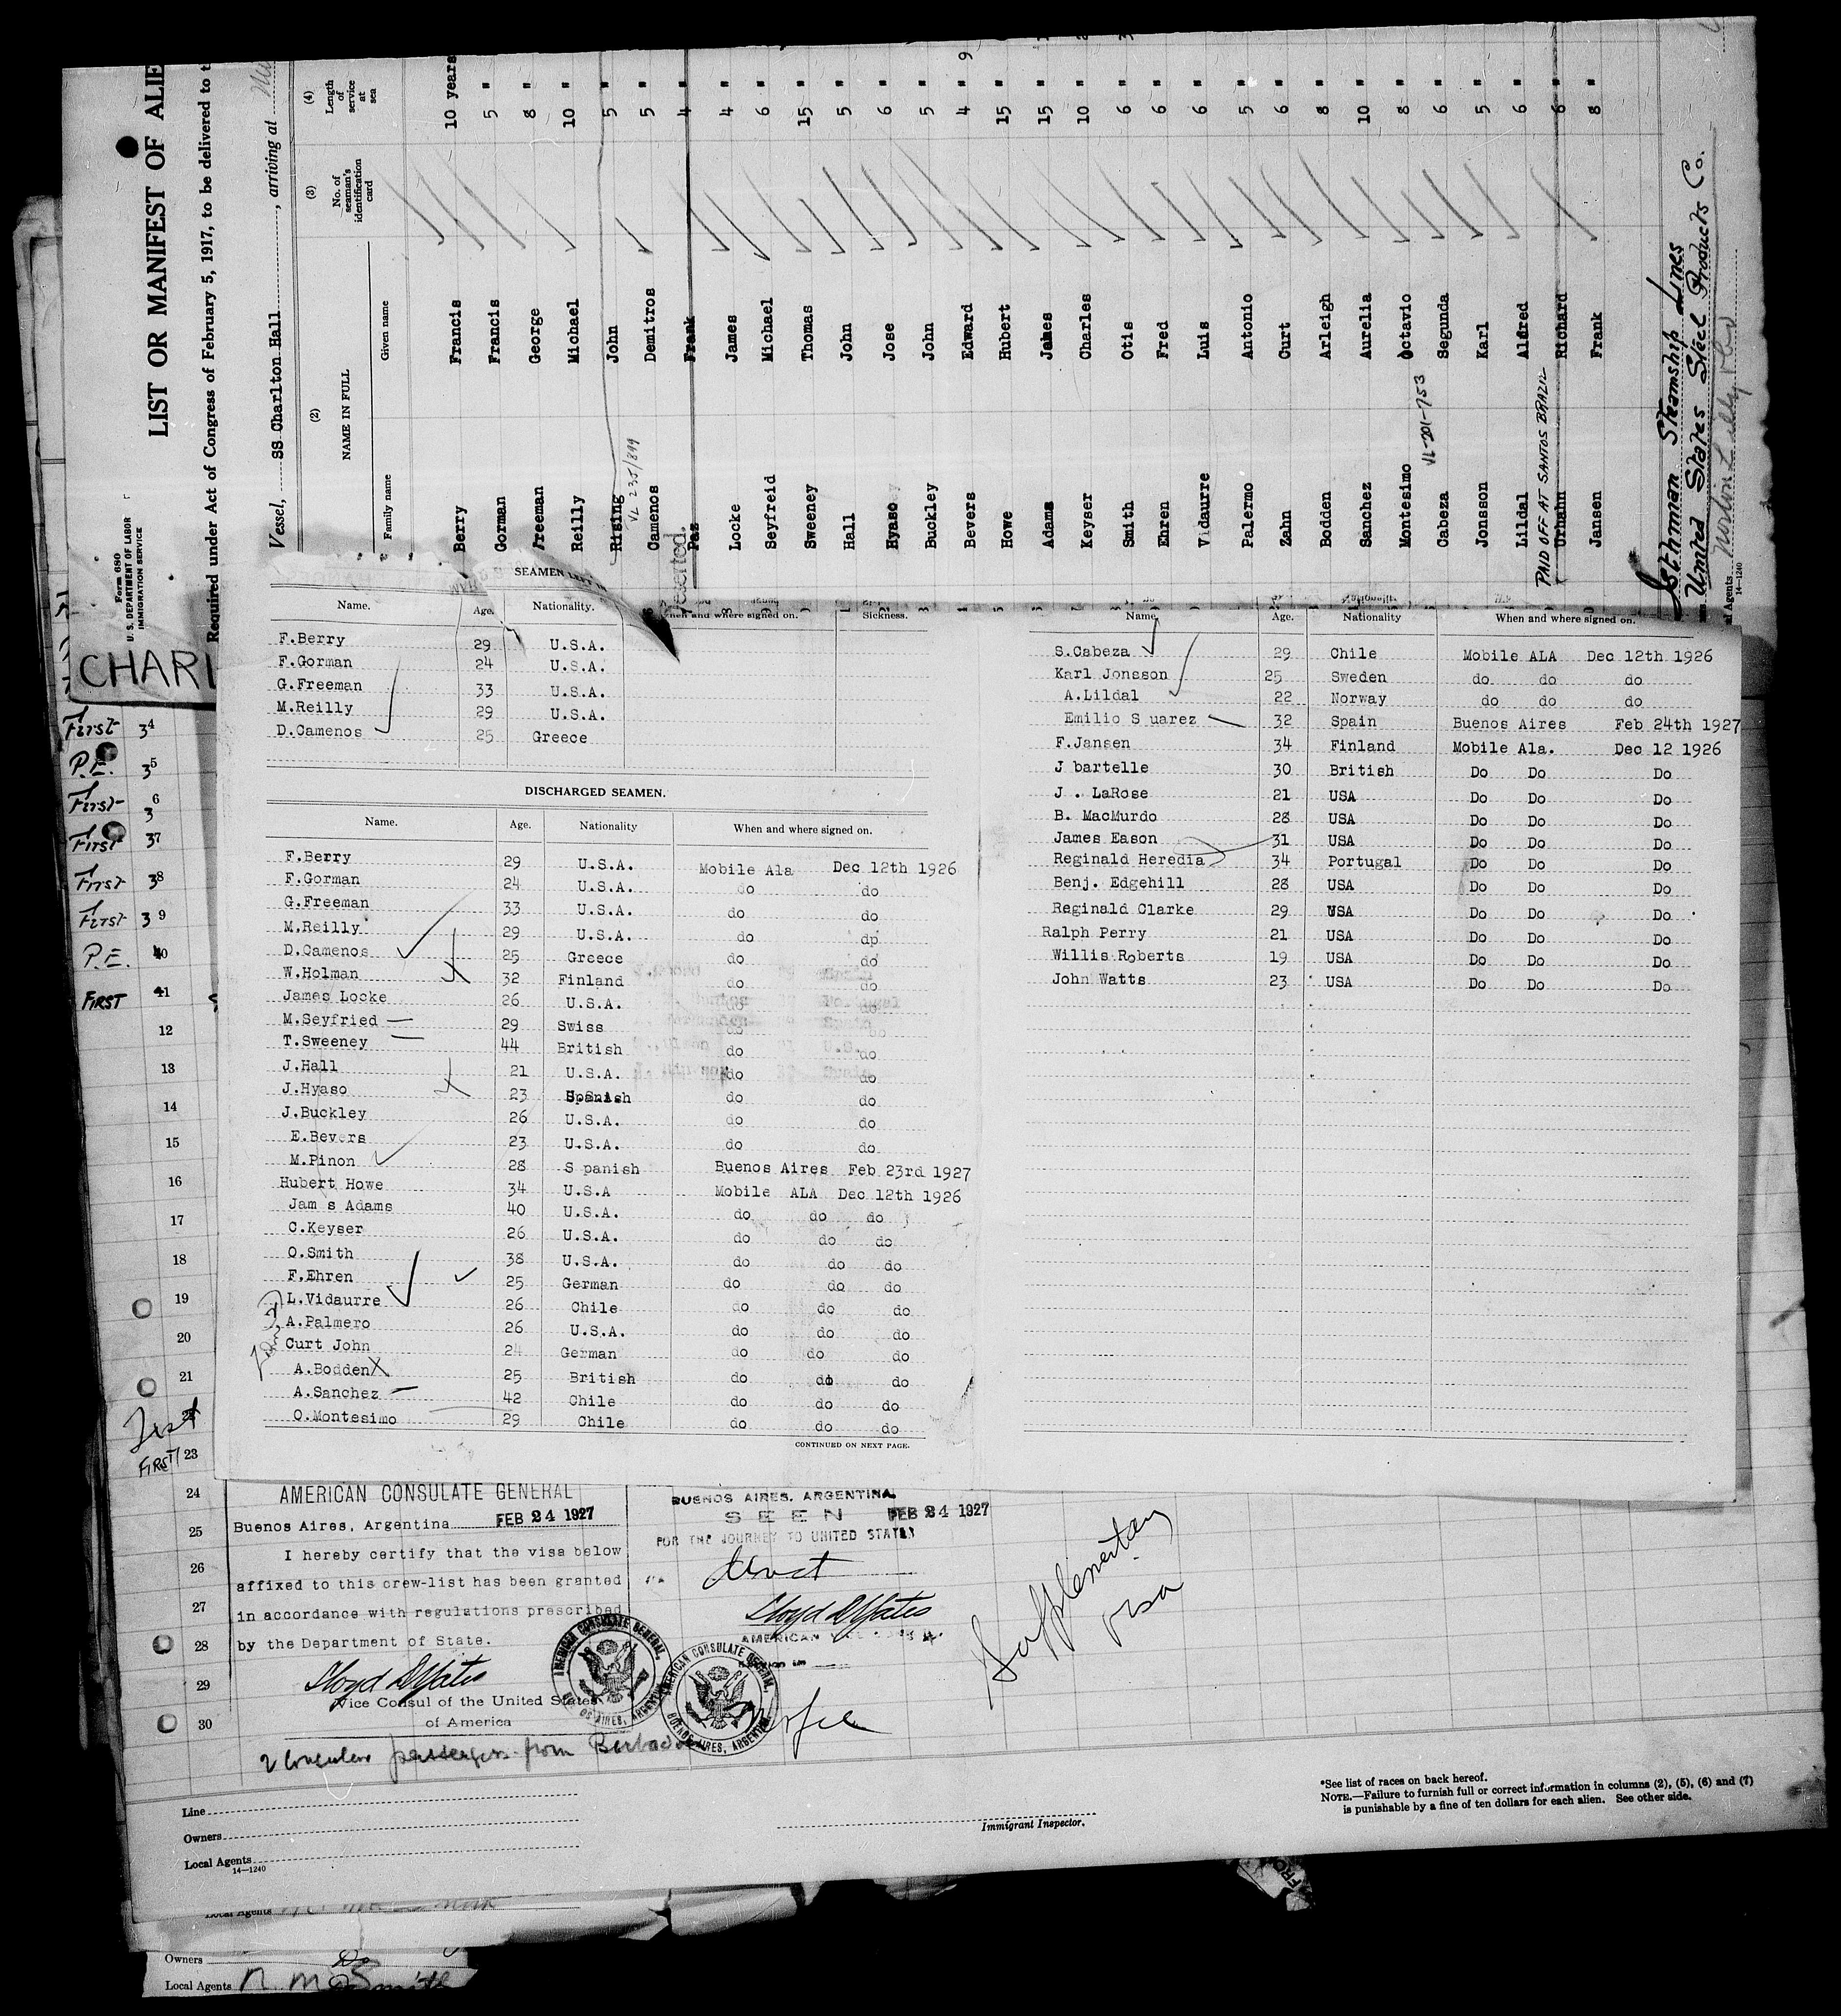 LIST OR MANIFEST OF ALIE
Required under Act of Congress of February 5, 1917, to be delivered to t
Form 680
U. S. DEPARTMENT OF LABOR
IMMIGRATION SERVICE
Vessel, SS Charlton Hall, arriving at
(2) NAME IN FULL
Family name Given name
(3) No. of seaman's identification card
(4) Length of service at sea
Berry Francis 10 years
Gorman Francis 5 "
Freeman George 8 "
Reilly Michael 10 "
Rising John 5 "
VL 235/899
Camenos Demitros 5 "
Deserted.
Paz Frank 4 "
Locke James 4 "
Seyfreid Michael 6 "
Sweeney Thomas 15 "
Hall John 5 "
Hyaso Jose 6 "
Buckley John 5 "
Bevers Edward 4 "
Howe Hubert 15 "
Adams James 15 "
Keyser Charles 10 "
Smith Otis 6 "
Ehren Fred 6 "
Vidaurre Luis 6 "
Palermo Antonio 5 "
Zahn Curt 6 "
Bodden Arleigh 8 "
Sanchez Aurelia 10 "
Montesimo Octavio 8 "
VL-201-753
Cabeza Segunda 6 "
Jonsson Karl 5 "
Lildal Alfred 6 "
PAID OFF AT SANTOS BRAZIL
Urhahn Richard 6 "
Jansen Frank 8 "
Isthman Steamship Lines
United States Steel Products Co.
Agents
14-1240
CHARL
First 34
P.E. 35
First 36
First 37
First 38
First 39
P.E. 40
FIRST 41
12
13
14
15
16
17
18
19
20
21
First
FIRST 23
24
25
26
27
28
29
30
SEAMEN LEFT
Name. Age. Nationality. When and where signed on. Sickness.
F.Berry 29 U.S.A.
F.Gorman 24 U.S.A.
G.Freeman 33 U.S.A.
M.Reilly 29 U.S.A.
D.Camenos 25 Greece
DISCHARGED SEAMEN.
Name. Age. Nationality When and where signed on.
F.Berry 29 U.S.A. Mobile Ala Dec 12th 1926
F.Gorman 24 U.S.A. do do
G.Freeman 33 U.S.A. do do
M.Reilly 29 U.S.A. do dp
D.Camenos 25 Greece do do
W.Holman 32 Finland do do
James Locke 26 U.S.A. do do
M.Seyfried 29 Swiss do do
T.Sweeney 44 British do do
J.Hall 21 U.S.A. do do
J.Hyaso 23 Spanish do do
J.Buckley 26 U.S.A. do do
E.Bevers 23 U.S.A. do do
M.Pinon 28 S panish Buenos Aires Feb 23rd 1927
Hubert Howe 34 U.S.A Mobile ALA Dec 12th 1926
Jam s Adams 40 U.S.A. do do do
C.Keyser 26 U.S.A. do do do
O.Smith 38 U.S.A. do do do
F.Ehren 25 German do do do
L.Vidaurre 26 Chile do do do
A.Palmero 26 U.S.A. do do do
Curt John 24 German do do do
A.Bodden 25 British do do do
A.Sanchez 42 Chile do do do
O.Montesimo 29 Chile do do do
CONTINUED ON NEXT PAGE.
Name Age. Nationality When and where signed on.
S.Cabeza 29 Chile Mobile ALA Dec 12th 1926
Karl Jonsson 25 Sweden do do do
A.Lildal 22 Norway do do do
Emilio S uarez 32 Spain Buenos Aires Feb 24th 1927
F.Jansen 34 Finland Mobile Ala. Dec 12 1926
J bartelle 30 British Do Do Do
J . LaRose 21 USA Do Do Do
B. MacMurdo 28 USA Do Do Do
James Eason 31 USA Do Do Do
Reginald Heredia 34 Portugal Do Do Do
Benj. Edgehill 28 USA Do Do Do
Reginald Clarke 29 USA Do Do Do
Ralph Perry 21 USA Do Do Do
Willis Roberts 19 USA Do Do Do
John Watts 23 USA Do Do Do
AMERICAN CONSULATE GENERAL
Buenos Aires, Argentina FEB 24 1927
I hereby certify that the visa below
affixed to this crew-list has been granted
in accordance with regulations prescribed
by the Department of State.
Lloyd D Yates
Vice Consul of the United States
of America
BUENOS AIRES, ARGENTINA
SEEN FEB 24 1927
FOR THE JOURNEY TO UNITED STATES
Lloyd D Yates
AMERICAN
AMERICAN CONSULATE GENERAL
BUENOS AIRES, ARGENTINA
AMERICAN CONSULATE GENERAL,
BUENOS AIRES, ARGENTINA
No fee
Supplementary
visa
2 Consular passengers from Barbados
Line
Owners
Local Agents
14-1240
Immigrant Inspector.
*See list of races on back hereof.
NOTE.—Failure to furnish full or correct information in columns (2), (5), (6) and (7)
is punishable by a fine of ten dollars for each alien. See other side.
Local Agents
Owners Do
Local Agents